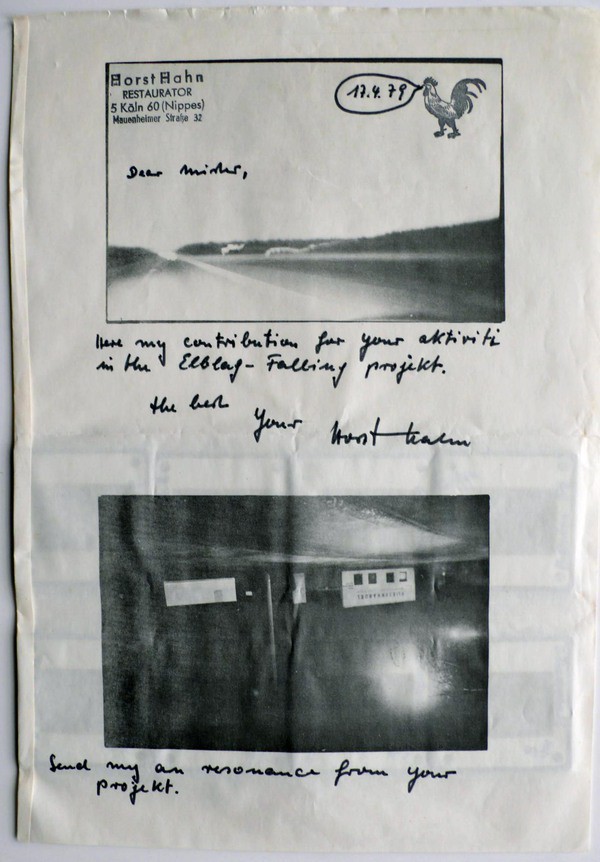 Horst Hahn
RESTAURATOR
5 Köln 60 (Nippes)
Mauenheimer Straße 32
17.4.79
Dear
Here my contribution for your aktiviti
in the Elblag-Falling projekt.
the best
Your Horst Hahn
Send my an resonance from your
projekt.